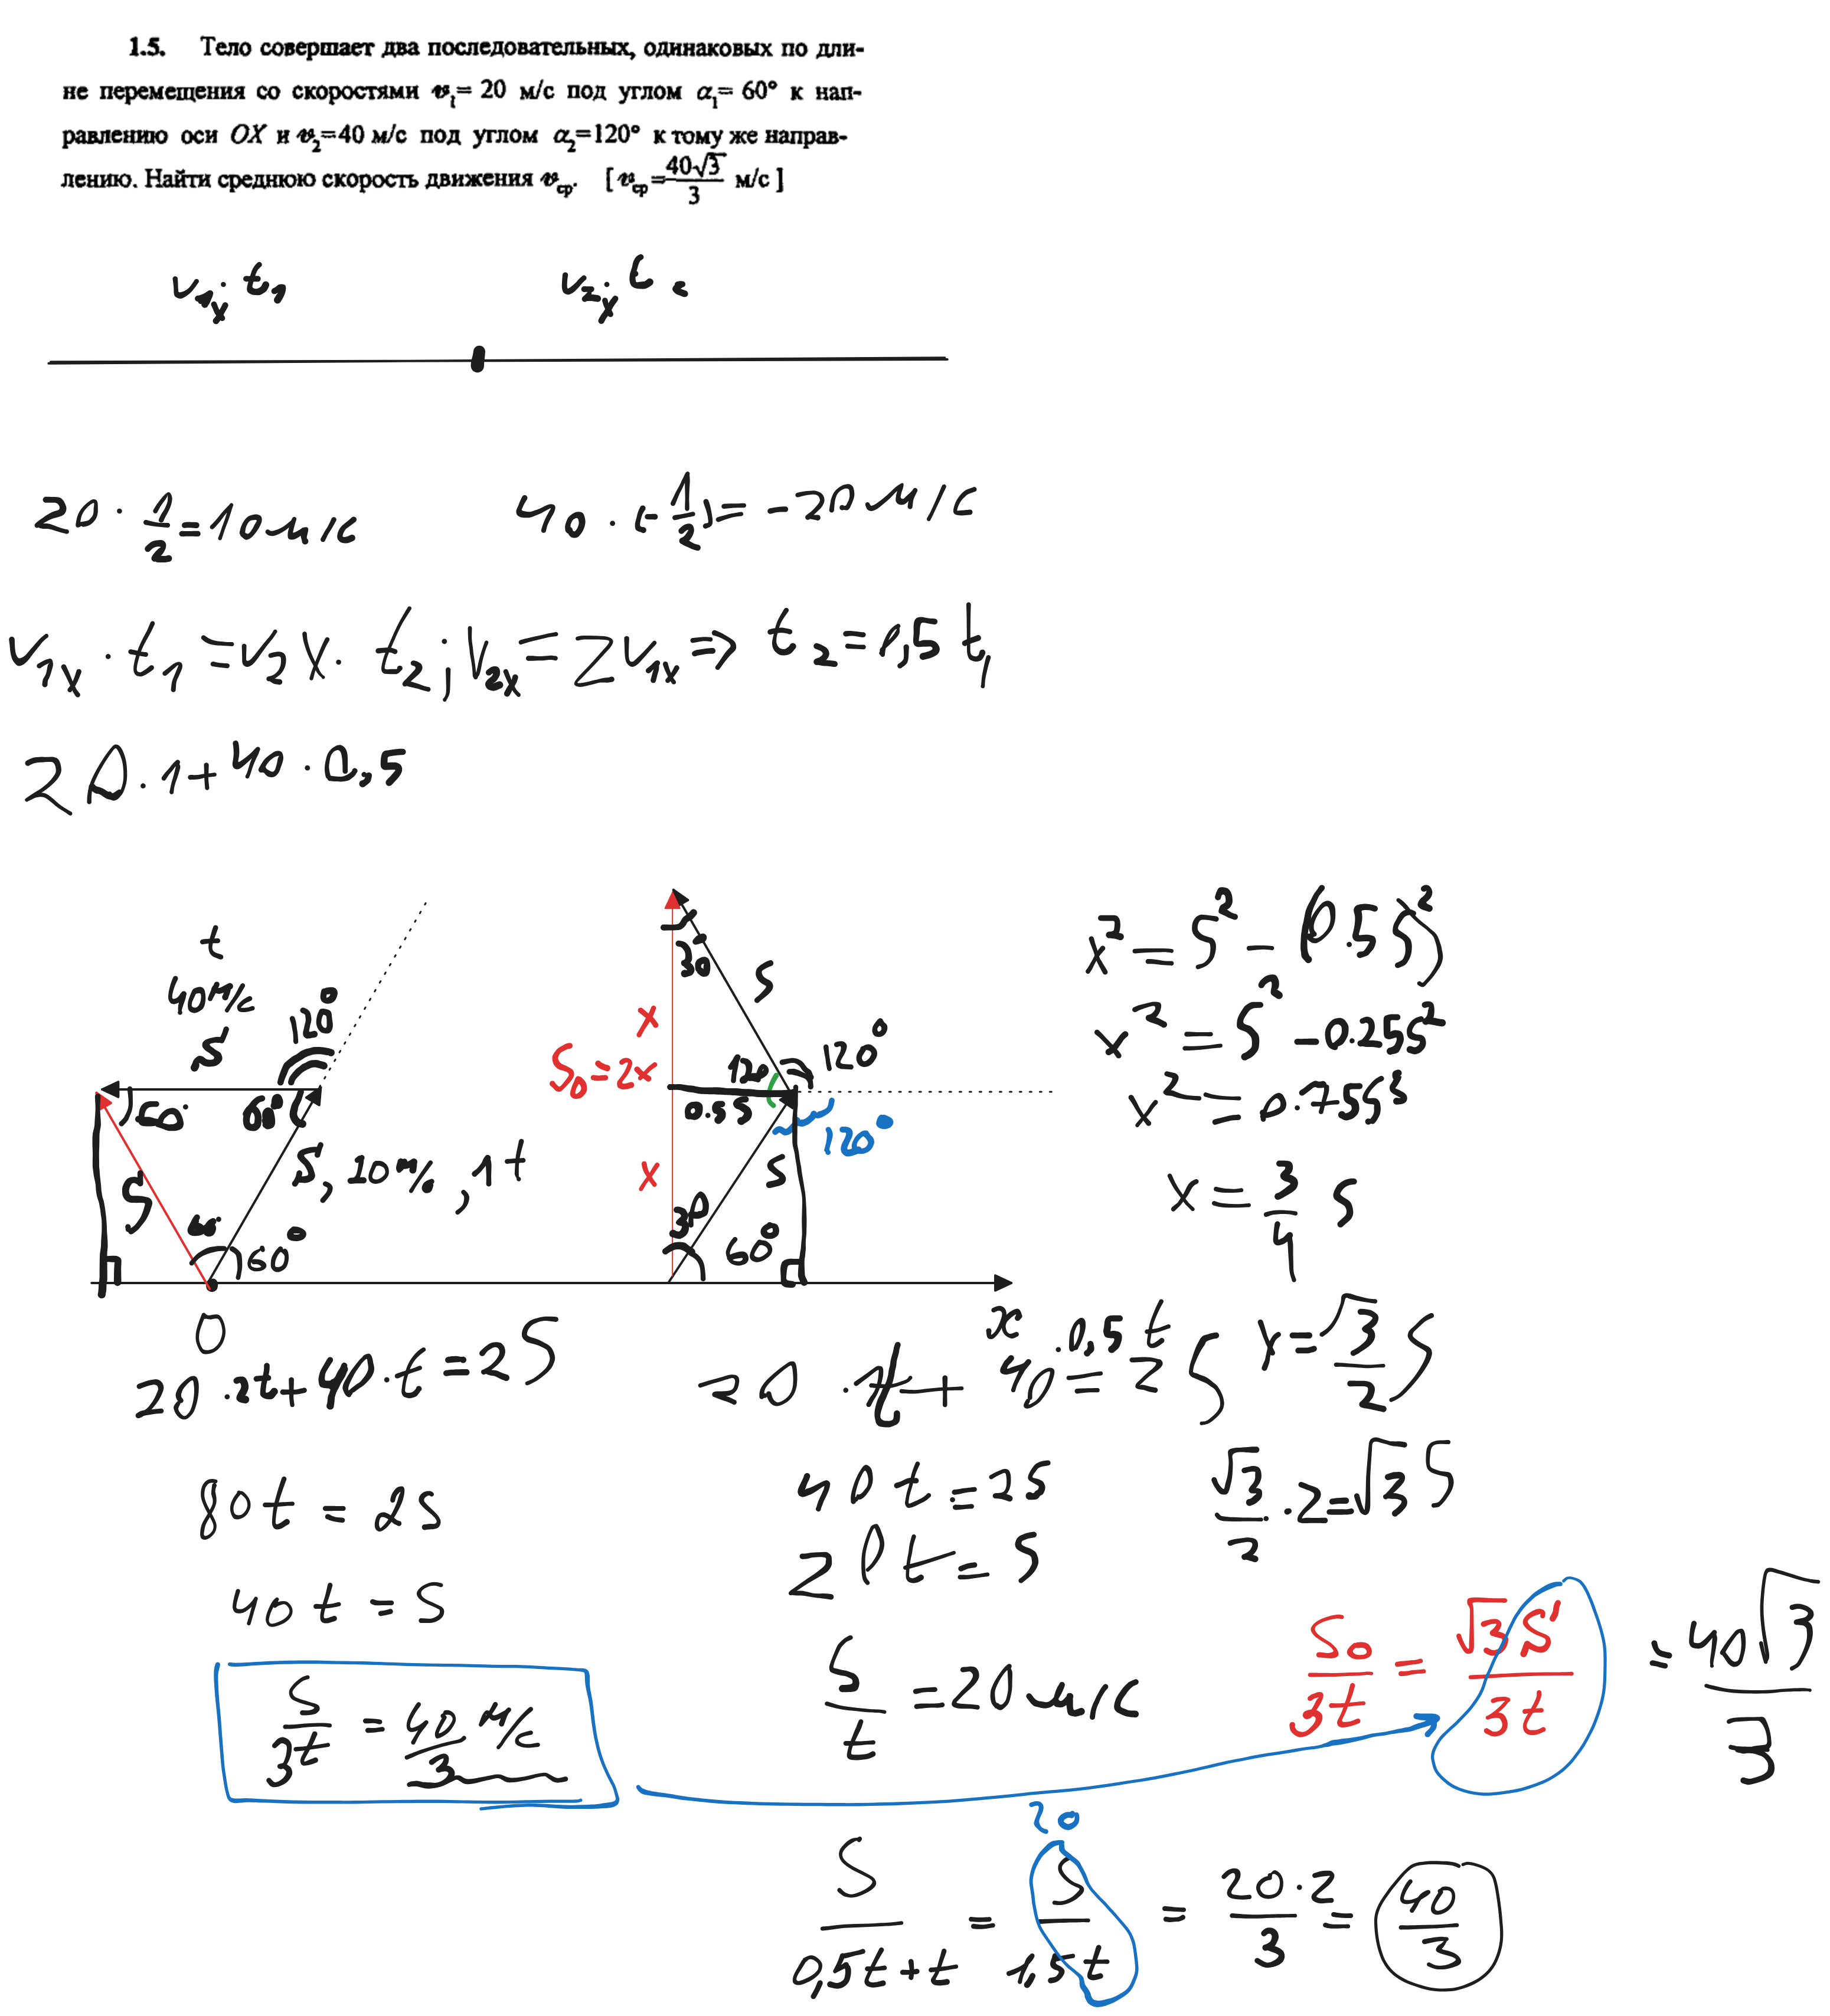 1.5. Тело совершает два последовательных, одинаковых по дли-
не перемещения со скоростями v₁= 20 м/с под углом α₁= 60° к нап-
равлению оси OX и v₂=40 м/с под углом α₂=120° к тому же направ-
лению. Найти среднюю скорость движения vср. [ vср=40√3/3 м/с ]
v₁ₓ · t₁ v₂ₓ · t₂
20 · 1/2 = 10 м/с 40 · (-1/2) = -20 м/с
v₁ₓ · t₁ = v₂ₓ · t₂ ; v₂ₓ = 2v₁ₓ => t₂ = 0,5 t₁
20 · 1 + 40 · 0,5
t
40 м/с
S
120°
60° 60°
S, 20 м/с, 2t
S
60° 60°
O
30
S
x
S₀=2x
120 120°
0.5S
120°
x S
30 60°
x
x² = S² - (0.5S)²
x² = S² - 0.25S²
x² = 0.75S²
x = 3/4 S
x = √3/2 S
√3/2 · 2 = √3 S
20 · 2t + 40 · t = 2S
80t = 2S
40t = S
S/3t = 40/3 м/с
20 · t + 40 · 0,5t = 2S
40t = 2S
20t = S
S/t = 20 м/с
S₀/3t = √3 S/3t = 40√3/3
20
S/(0,5t + t) = S/1,5t = 20·2/3 = 40/3